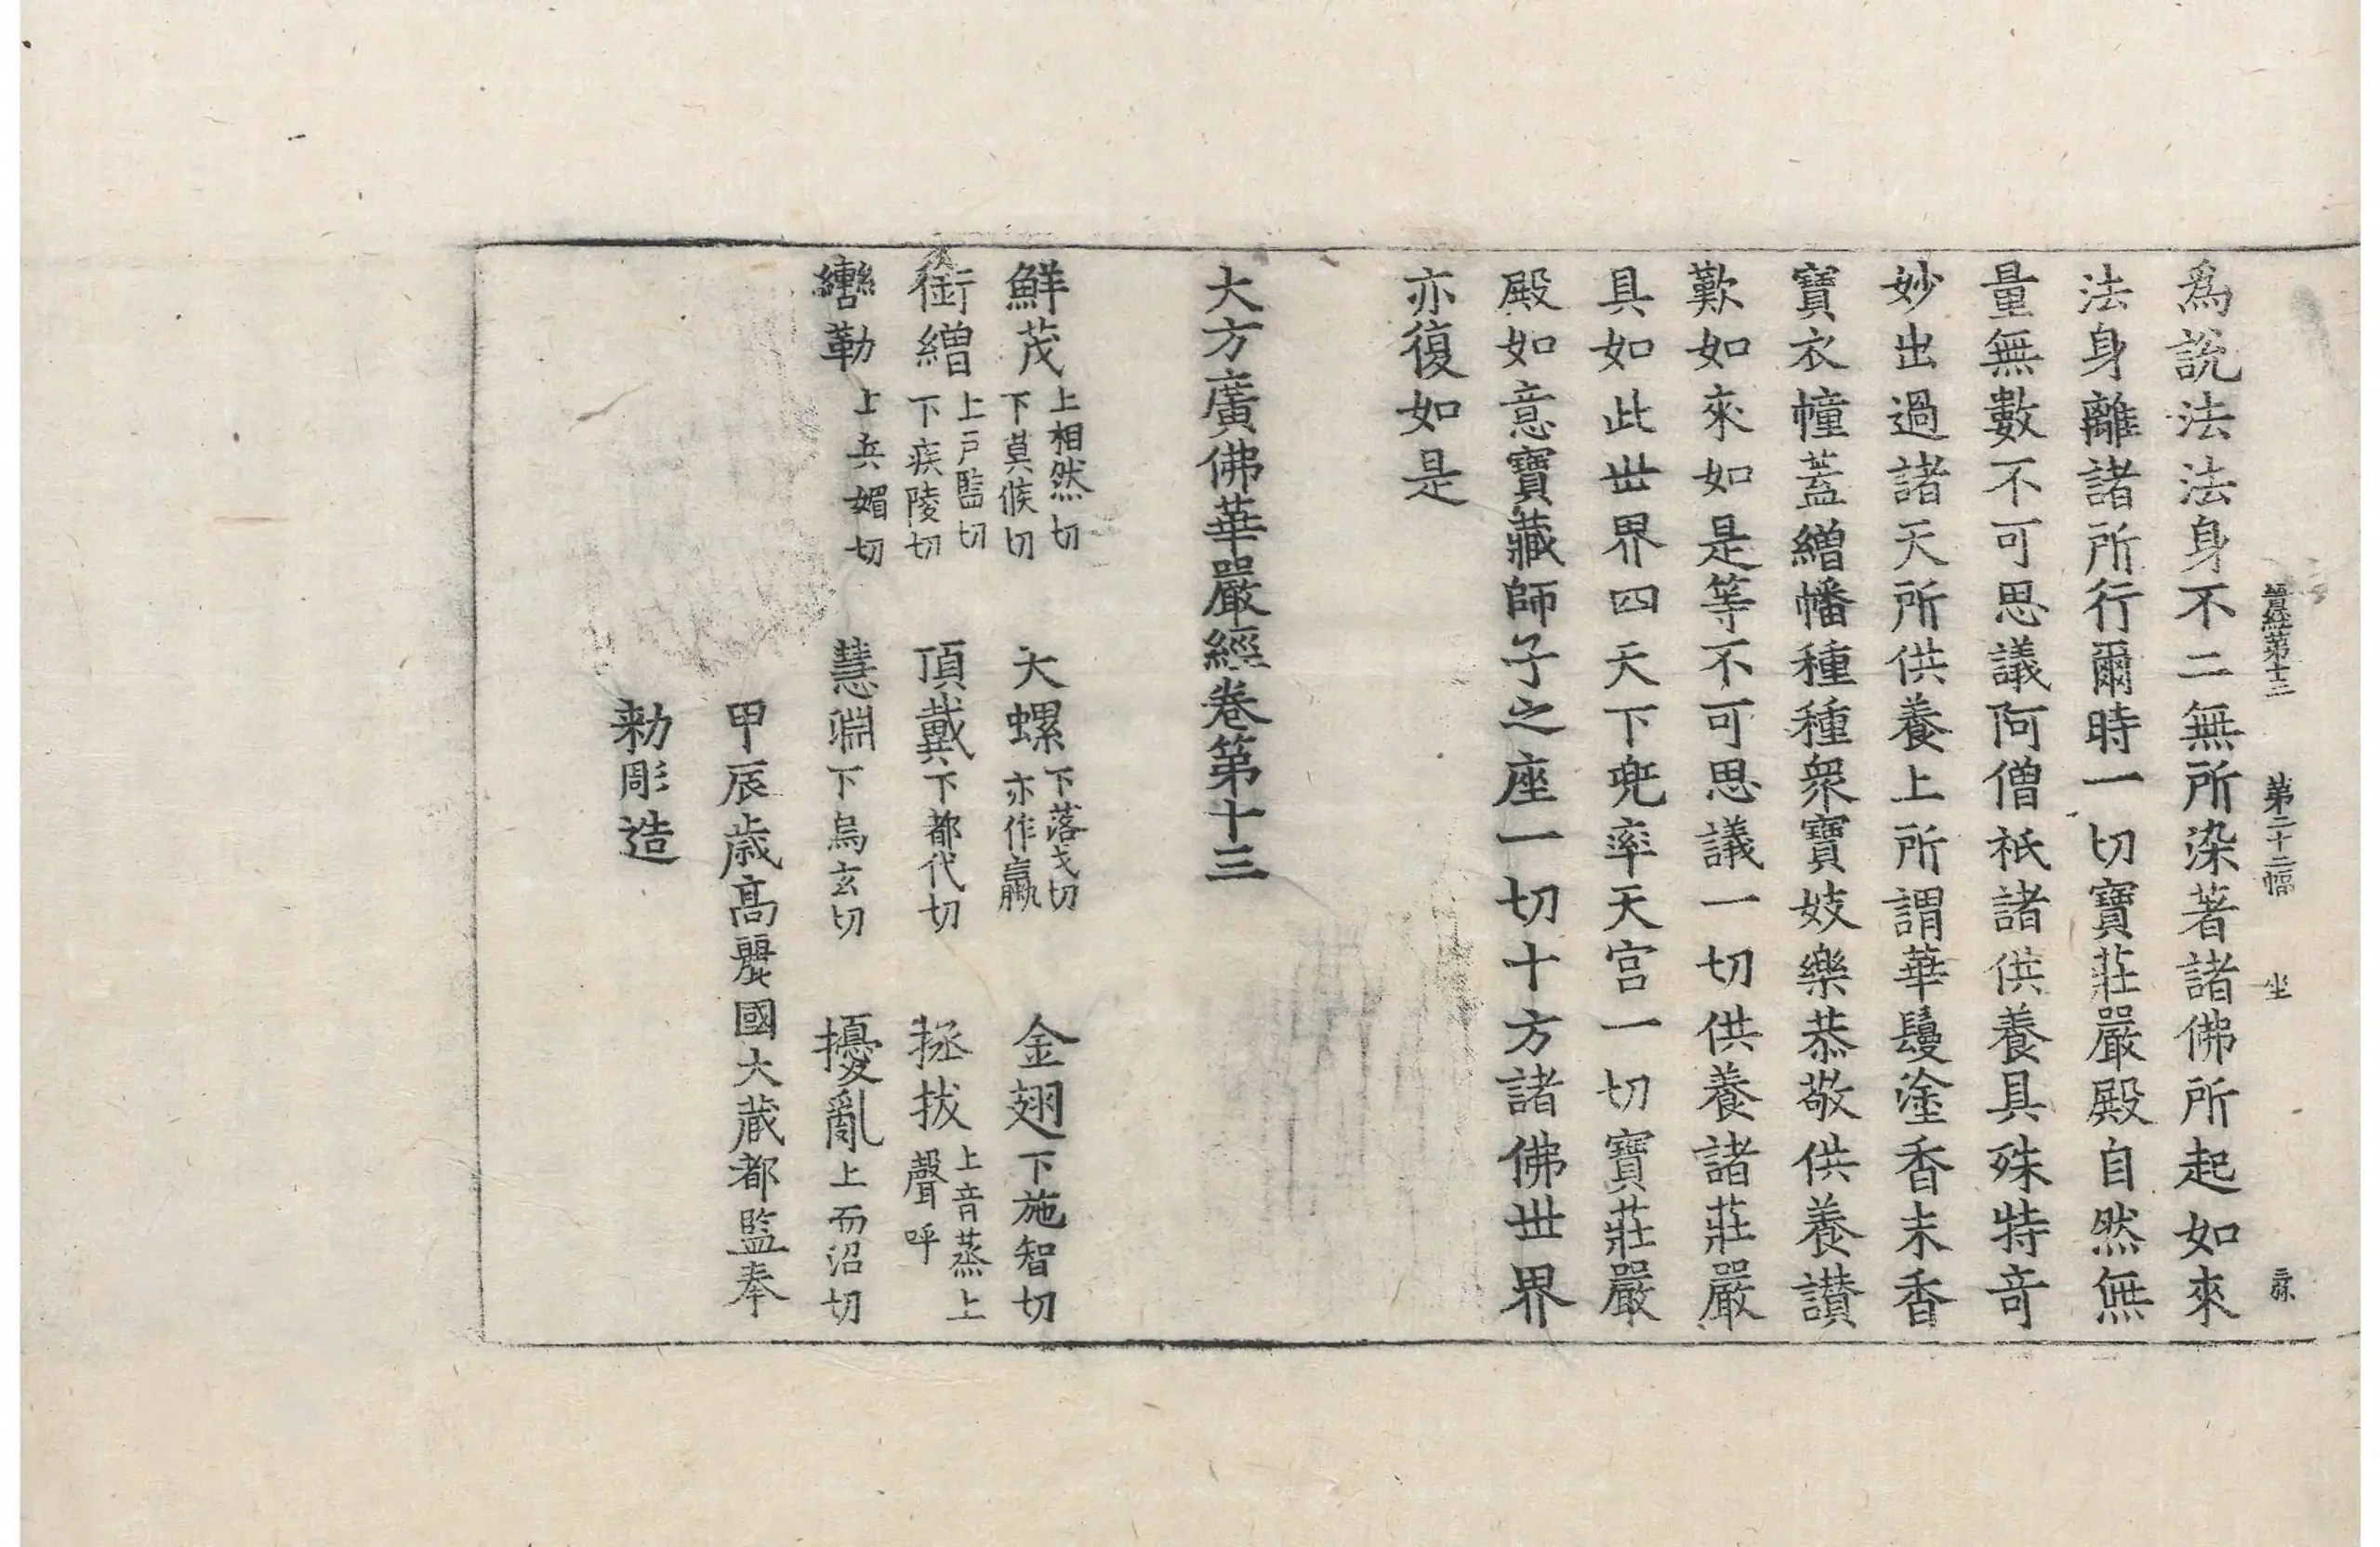 晉經第十三 第二十二幅 坐
爲說法法身不二無所染著諸佛所起如來
法身離諸所行爾時一切寶莊嚴殿自然無
量無數不可思議阿僧祇諸供養具殊特奇
妙出過諸天所供養上所謂華鬘塗香末香
寶衣幢蓋繒幡種種衆寶妓樂恭敬供養讃
歎如來如是等不可思議一切供養諸莊嚴
具如此世界四天下兜率天宮一切寶莊嚴
殿如意寶藏師子之座一切十方諸佛世界
亦復如是
大方廣佛華嚴經卷第十三
鮮茂上相然切下莫候切 大螺下落戈切亦作蠃 金翅下施智切
銜繒上戸監切下疾陵切 頂戴下都代切 拯拔上音蒸上聲呼
轡勒上兵媚切 慧淵下烏玄切 擾亂上而沼切
甲辰歲高麗國大藏都監奉
勑彫造